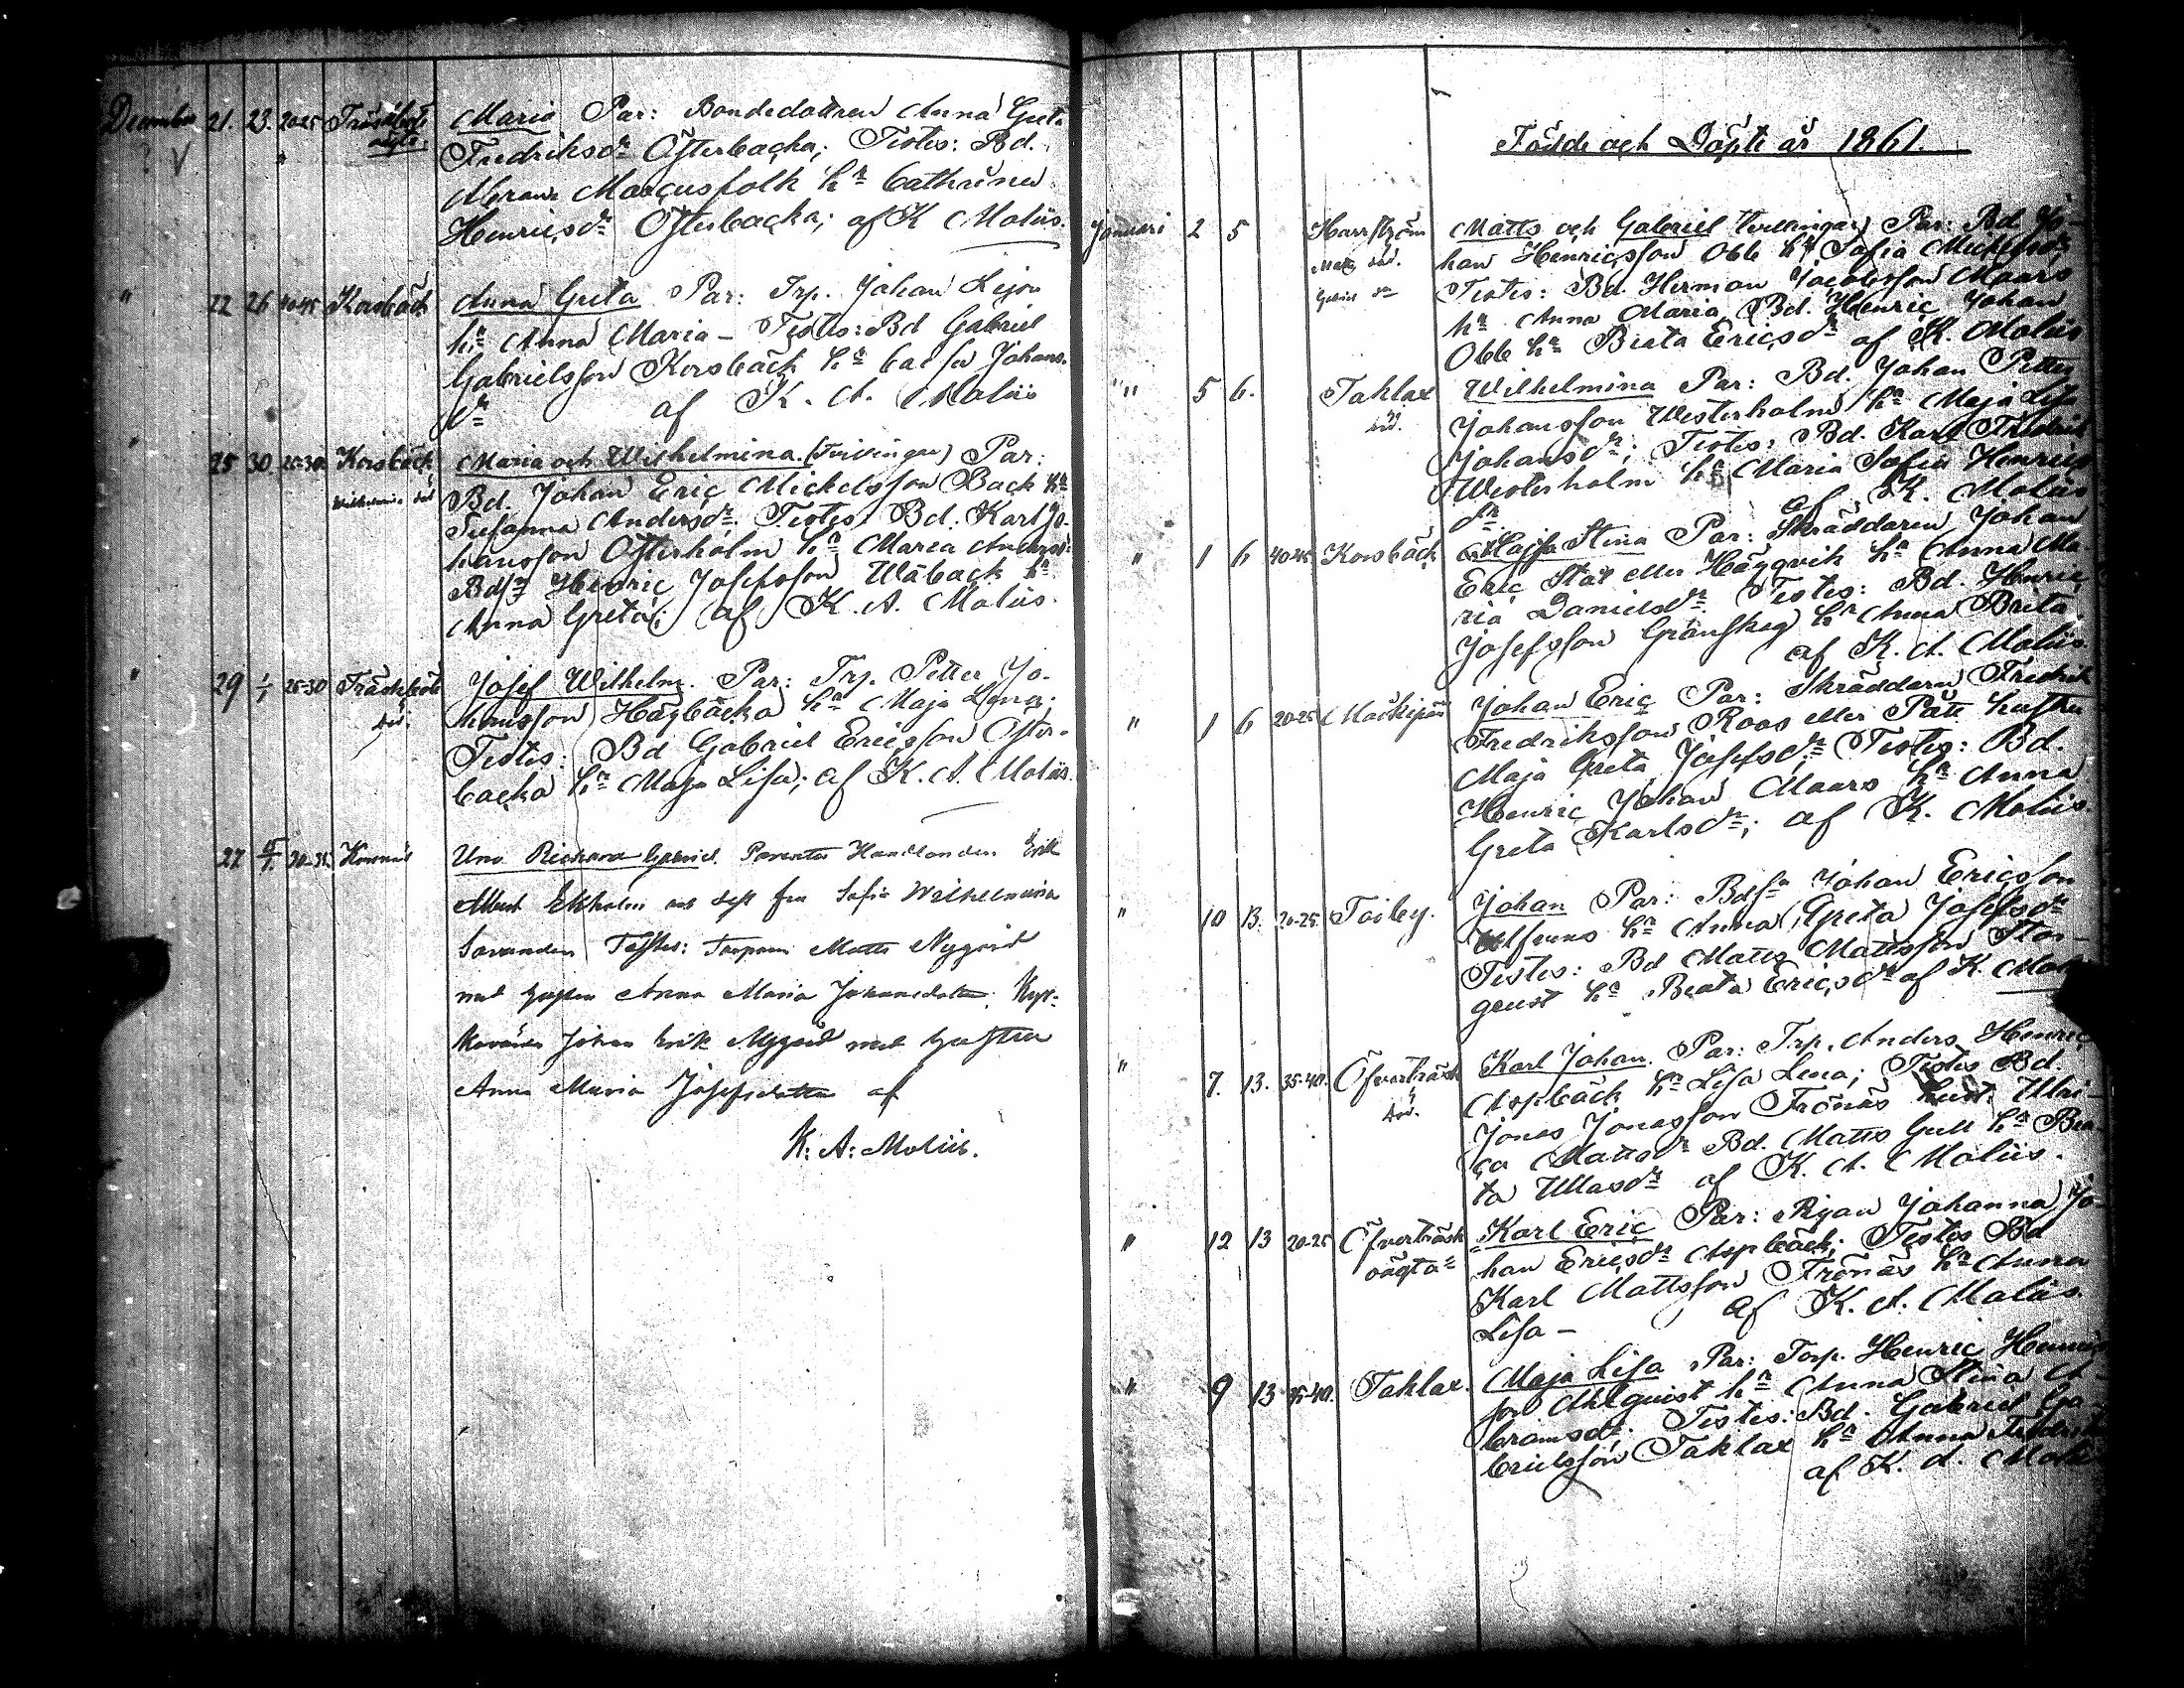 December 21. 23. 20-25 Maria Par: Bondedottren Anna Greta
Fredriksdr Österbacka; Testes: Bd.
Abram Marcusfolk hn Cathrina
Henricsdr Österbacka; af K Moliis.
" 22 26 40-45 Korsbäck Anna Greta Par: Trp. Johan Lejon
hn Anna Maria – Testes: Bd Gabriel
Gabrielsson Korsbäck hn Caisa Johans-
dr af K. A. Moliis
" 25 30 25-30 Korsbäck Maria och Wilhelmina. (Tvillingar) Par:
Wilhelmina död Bd. Johan Eric Mickelsson Back hn
Susanna Andersdr. Testes: Bd. Karl Jo-
hansson Österholm hn Maria Andersdr
Bdsn Henric Josefsson Wäback hn
Anna Greta; af K. A. Moliis.
" 29 1/1 25-30 Träskböle Josef Wilhelm. Par: Trp. Petter Jo-
död. hansson Högbacka hn Maja Lena;
Testes: Bd Gabriel Ericsson Öster-
backa hn Maja Lisa; af K. A. Moliis.
27 30-35. Korsnäs Uno Richard Gabriel. Parentes Handlanden Erik
Albert Ekholm och dess fru Sofia Wilhelmina
Testes: Torparn Matts Nygård
med hustru Anna Maria Johansdotter. Kyr-
Johan Erik Nygård med hustru
Anna Maria Josefsdotter af
K: A: Moliis.
Födde och Döpte år 1861.
Januari 2 5 Harrström Matts och Gabriel (tvillingar) Par: Bd Jo-
Matts död. han Henricsson Obb hn Sofia Mickelsdr
Gabriel dn Testes: Bd. Herman Jacobsson Maars
hn Anna Maria, Bd. Henric Johan
Obb hn Beata Ericsdr af K. Moliis
" 5 6. Taklax Wilhelmina Par: Bd. Johan Petter
död. Johansson Westerholm hn Maja Lisa
Johansdr; Testes: Bd. Karl Fredrik
Westerholm hn Maria Sofia Henrics
dr. af K. Moliis
" 1 6 40-45 Korsbäck Majsa Stina Par: Skräddaren Johan
Eric Stål eller Häggvik hn Anna Ma-
ria Danielsdr. Testes: Bd. Henric
Josefsson Granskog hn Anna Brita
af K. A. Moliis.
" 1 6 20-25 Johan Eric Par: Skräddarn Fredrik
Fredriksson Roos eller Pått hustru
Maja Greta Josefsdr; Testes: Bd.
Henric Johan Maars hn Anna
Greta Karlsdr; af K. Moliis.
" 10 13. 20-25 Töiby. Johan Par: Bdsn Johan Ericsson
Ulfsnas hn Anna Greta Josefsdr
Testes: Bd Matts Mattsson Stor-
gust hn Beata Ericsdr af K. Moliis
" 7. 13. 35-40. Öfverträsk Karl Johan. Par: Trp. Anders Henric
död. Aspbäck hn Lisa Lena; Testes Bd.
Jonas Jonasson Frönäs hust. Ulri-
ca Mattsdr Bd. Matts Gull hn Bea-
ta Ullasdr af K. A. Moliis.
" 12 13 20-25 Öfverträsk Karl Eric Par: Pigan Johanna Jo-
oägta han Ericsdr Aspbäck; Testes Bd
Karl Mattsson Frönäs hn Anna
Lisa – af K. A. Moliis.
" 9 13 35-40. Taklax. Maja Lisa Par: Torp. Henric Henrics
son Ahlquist hn Anna Stina A-
bramsdr. Testes: Bd. Gabriel Ga-
brielsson Taklax hn Anna Fredrika
af K. A. Moliis